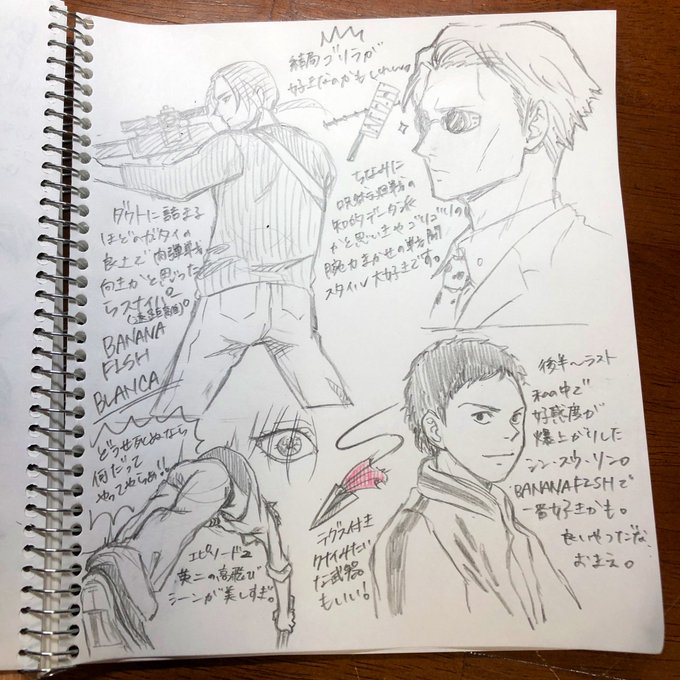 結局ゴリラが
好きなのかもしれない。
ちなみに
呪術廻戦の
知的データ派
かと思いきやゴリゴリの
腕力まかせの戦闘
スタイル大好きです。
ほどのガタイの
良さで肉弾戦
向きかと思った
らスナイパー
(遠距離)。
BANANA
FISH
BLANCA
どうせ死ぬなら
何だって
やってやらぁ!!
エピソード2
英二の高飛び
シーンが美しすぎ。
クナイみたい
な武器
もいい!
後半〜ラスト
私の中で
好感度が
爆上がりした
シン・スウ・リン。
BANANA FISHで
一番好きかも。
良いやつだな、
おまえ。